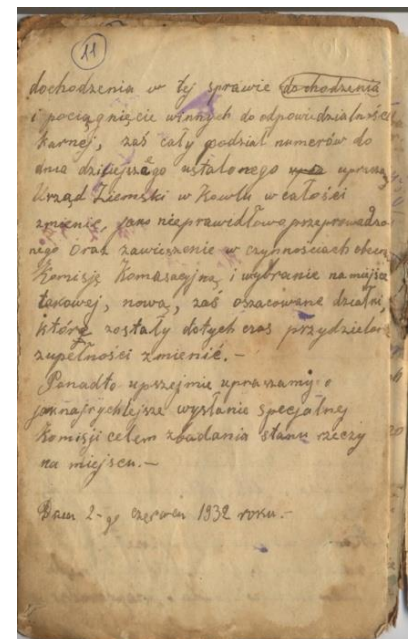 11
dochodzenia w tej sprawie dochodzenia
i pociągnięcie winnych do odpowiedzialności
karnej, zaś cały podział numerów do
dnia dzisiejszego ustalonego uprasza
Urząd Ziemski w Kowlu w całości
zmienić, jako nieprawidłowo przeprowadzo
nego oraz zawieszenie w czynnościach obecn
Komisję Komasacyjną, i wybranie na miejsce
takowej, nową, zaś oszacowane działki,
które zostały dotychczas przydzielon
zupełności zmienić. —
Ponadto upszejmie upraszamy o
jaknajrychlejsze wysłanie specjalnej
Komisji celem zbadania stanu rzeczy
na miejscu. —
Dnia 2-go czerwca 1932 roku. —